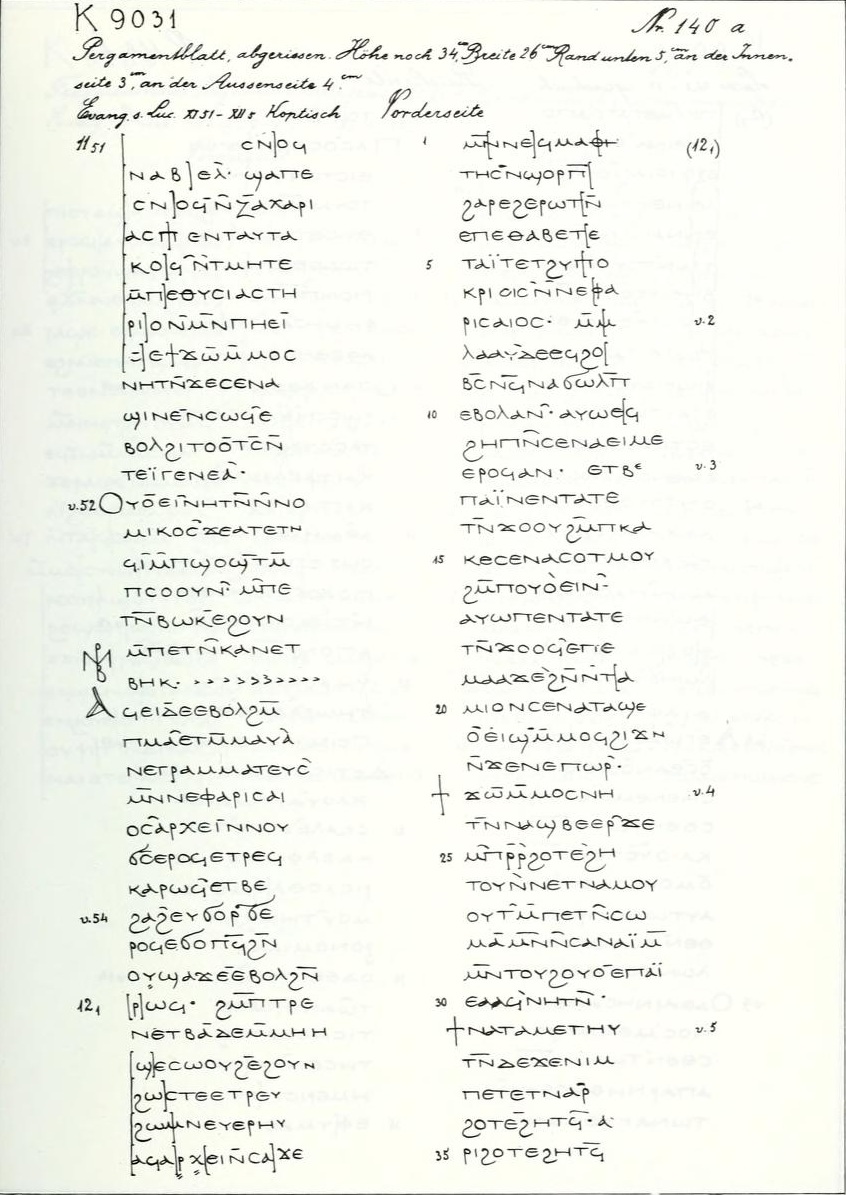 K 9031
Nr. 140 a
Pergamentblatt, abgerissen. Höhe noch 34 cm, Breite 26 cm Rand unten 5 cm, an der Innen-
seite 3 cm, an der Aussenseite 4 cm
Evang. s. Luc. XI 51 - XII 5 Koptisch Vorderseite
11 51 ⲥⲛ]ⲟϥ
[ⲛⲁⲃ]ⲉⲗ· ϣⲁⲡⲉ
[ⲥⲛ]ⲟϥⲛ̄ⲍⲁⲭⲁⲣⲓ
ⲁⲥⲡ]ⲉⲛⲧⲁⲩⲧⲁ
[ⲕⲟ]ϥⲛ̄ⲧⲙⲏⲧⲉ
ⲙ̄ⲡ]ⲉⲑⲩⲥⲓⲁⲥⲧⲏ
[ⲣⲓ]ⲟⲛⲙⲛ̄ⲡⲏⲉⲓ̈
[=]ⲉϯϫⲱⲙ̄ⲙⲟⲥ
ⲛⲏⲧⲛ̄ϫⲉⲥⲉⲛⲁ
ϣⲓⲛⲉⲛ̄ⲥⲱϥⲉ
ⲃⲟⲗϩⲓⲧⲟⲟⲧⲥⲛ̄
ⲧⲉⲓ̈ⲅⲉⲛⲉⲁ·
v.52 ⲟⲩⲟⲉⲓⲛⲏⲧⲛ̄ⲛ̄ⲛⲟ
ⲙⲓⲕⲟⲥϫⲉⲁⲧⲉⲧⲛ
ϥⲓⲙ̄ⲡϣⲟϣⲧⲙ̄
ⲡⲥⲟⲟⲩⲛ· ⲙ̄ⲡⲉ
ⲧⲛ̄ⲃⲱⲕⲉϩⲟⲩⲛ
ⲙ̄ⲡⲉⲧⲛ̄ⲕⲁⲛⲉⲧ
ⲃⲏⲕ· >>>>>>>>>>
ⲁϥⲉⲓⲇⲉⲉⲃⲟⲗϩⲙ̄
ⲡⲙⲁⲉⲧⲙ̄ⲙⲁⲩⲁ
ⲛⲉⲅⲣⲁⲙⲙⲁⲧⲉⲩⲥ
ⲙⲛ̄ⲛⲉⲫⲁⲣⲓⲥⲁⲓ
ⲟⲥⲁⲣⲭⲉⲓⲛ̄ⲛⲟⲩ
ϭⲥⲉⲣⲟϥⲉⲧⲣⲉϥ
ⲕⲁⲣⲱϥⲉⲧⲃⲉ
v.54 ϩⲁϩⲉⲩϭⲟⲣϭⲉ
ⲣⲟϥⲉϭⲟⲡϥϩⲛ̄
ⲟⲩϣⲁϫⲉⲉⲃⲟⲗϩⲛ̄
12,1 [ⲣ]ⲱϥ· ϩⲙ̄ⲡⲧⲣⲉ
ⲛⲉⲧⲃⲁⲇⲉⲙ̄ⲙⲏⲏ
[ϣ]ⲉⲥⲱⲟⲩϩⲉϩⲟⲩⲛ
[ϩⲱ]ⲥⲧⲉⲉⲧⲣⲉⲩ
[ϩⲱ]ⲙⲛⲉⲩⲉⲣⲏⲩ
ⲁϥⲁ]ⲣⲭ[ⲉⲓⲛ̄ⲥⲁ]ϫⲉ
1 ⲙ̄[ⲛⲛⲉ]ϥⲙⲁⲑⲏ (12,1)
ⲧⲏⲥⲛ̄ϣⲟⲣⲡ̄[
ϩⲁⲣⲉϩⲉⲣⲱⲧ[ⲛ̄
ⲉⲡⲉⲑⲁⲃⲉⲧ[ⲉ
5 ⲧⲁⲓ̈ⲧⲉⲧϩⲩⲡⲟ
ⲕⲣⲓⲥⲓⲥⲛ̄ⲛⲉⲫⲁ
ⲣⲓⲥⲁⲓⲟⲥ· ⲙ̄ⲙ v.2
ⲗⲁⲁⲩⲇⲉⲉϥϩⲟ[
ⲃⲥ̄ⲛϥⲛⲁϭⲱⲗⲡ
10 ⲉⲃⲟⲗⲁⲛ· ⲁⲩⲱⲉ[ϥ
ϩⲏⲡⲛ̄ⲥⲉⲛⲁⲉⲓⲙⲉ
ⲉⲣⲟϥⲁⲛ· ⲉⲧⲃⲉ v.3
ⲡⲁⲓ̈ⲛⲉⲛⲧⲁⲧⲉ
ⲧⲛ̄ϫⲟⲟⲩϩⲙ̄ⲡⲕⲁ
15 ⲕⲉⲥⲉⲛⲁⲥⲟⲧⲙⲟⲩ
ϩⲙ̄ⲡⲟⲩⲟⲉⲓⲛ·
ⲁⲩⲱⲡⲉⲛⲧⲁⲧⲉ
ⲧⲛ̄ϫⲟⲟϥⲉⲡⲉ
ⲙⲁⲁϫⲉϩⲛ̄ⲛ̄ⲧⲁ
20 ⲙⲓⲟⲛⲥⲉⲛⲁⲧⲁϣⲉ
ⲟⲉⲓϣⲙ̄ⲙⲟϥϩⲓϫⲛ
ⲛ̄ϫⲉⲛⲉⲡⲱⲣ·
ϯϫⲱⲙ̄ⲙⲟⲥⲛⲏ v.4
ⲧⲛ̄ⲛⲁϣⲃⲉⲉⲣϫⲉ
25 ⲙ̄ⲡⲣ̄ⲣ̄ϩⲟⲧⲉϩⲏ
ⲧⲟⲩⲛ̄ⲛⲉⲧⲛⲁⲙⲟⲩ
ⲟⲩⲧⲙ̄ⲡⲉⲧⲛ̄ⲥⲱ
ⲙⲁⲙⲛ̄ⲛ̄ⲥⲁⲛⲁⲓ̈ⲙ̄
ⲙⲛ̄ⲧⲟⲩϩⲟⲩⲟⲉⲡⲁⲓ̈
30 ⲉⲁⲁϥⲛⲏⲧⲛ̄·
ϯⲛⲁⲧⲁⲙⲉⲧⲏⲩ v.5
ⲧⲛ̄ⲇⲉϫⲉⲛⲓⲙ
ⲡⲉⲧⲉⲧⲛⲁⲣ̄
ϩⲟⲧⲉϩⲏⲧϥ̄·ⲁ
35 ⲣⲓϩⲟⲧⲉϩⲏⲧϥ̄